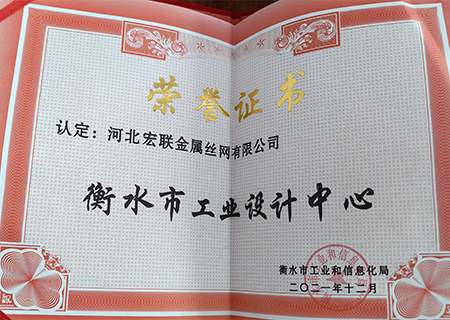 荣誉证书
认定：河北宏联金属丝网有限公司
衡水市工业设计中心
衡水市工业和信息化局
二〇二一年十二月